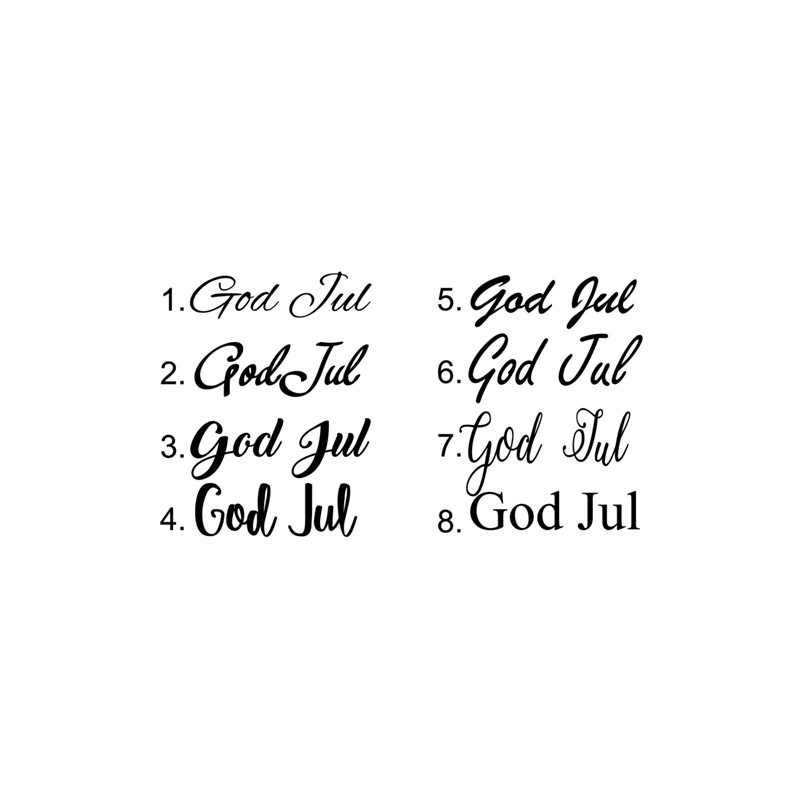 1. God Jul
2. God Jul
3. God Jul
4. God Jul
5. God Jul
6. God Jul
7. God Jul
8. God Jul